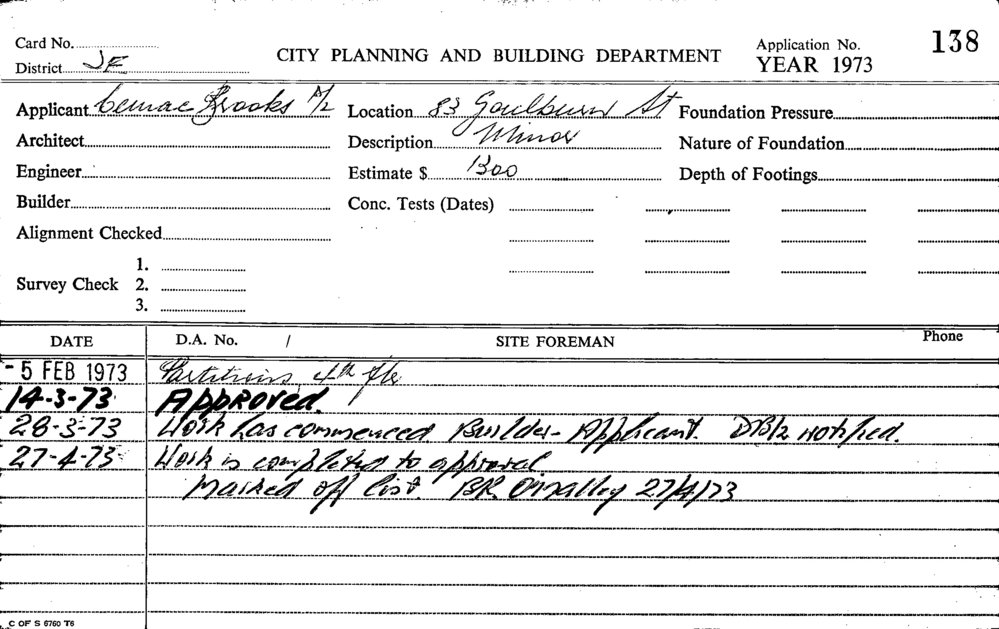 Card No.
District JE
CITY PLANNING AND BUILDING DEPARTMENT
Application No. 138
YEAR 1973
Applicant Cemac Brooks P/L
Location 83 Goulburn St
Foundation Pressure
Architect
Description Minor
Nature of Foundation
Engineer
Estimate $ 1300
Depth of Footings
Builder
Conc. Tests (Dates)
Alignment Checked
Survey Check
1.
2.
3.
DATE
D.A. No. /
SITE FOREMAN
Phone
- 5 FEB 1973 Partitions 4th flr
14-3-73 APPROVED.
28-3-73 Work has commenced Builder - Applicant. notified.
27-4-73 Work is completed to approval.
Marked off list. BR O'Malley 27/4/73
C OF S 6760 T6